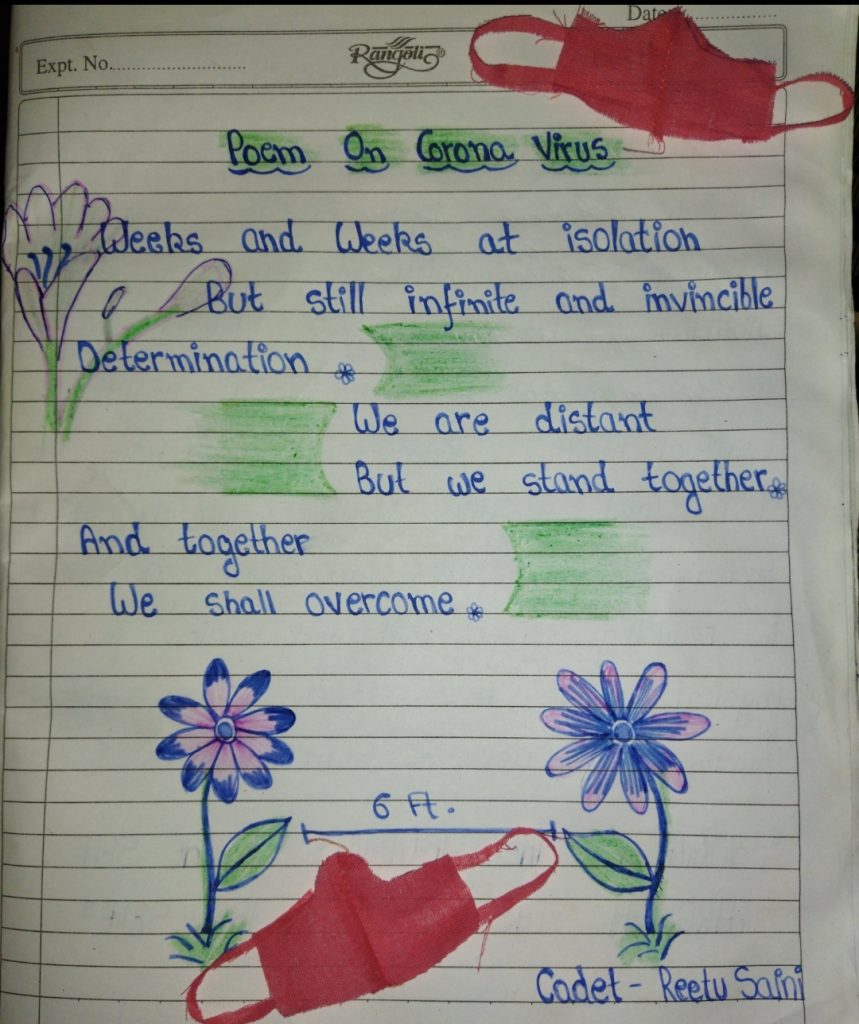 Date
Expt. No.
Rangoli®
Poem On Corona Virus
Weeks and Weeks at isolation
But still infinite and invincible
Determination.
We are distant
But we stand together.
And together
We shall overcome.
6 Ft.
Cadet - Reetu Saini